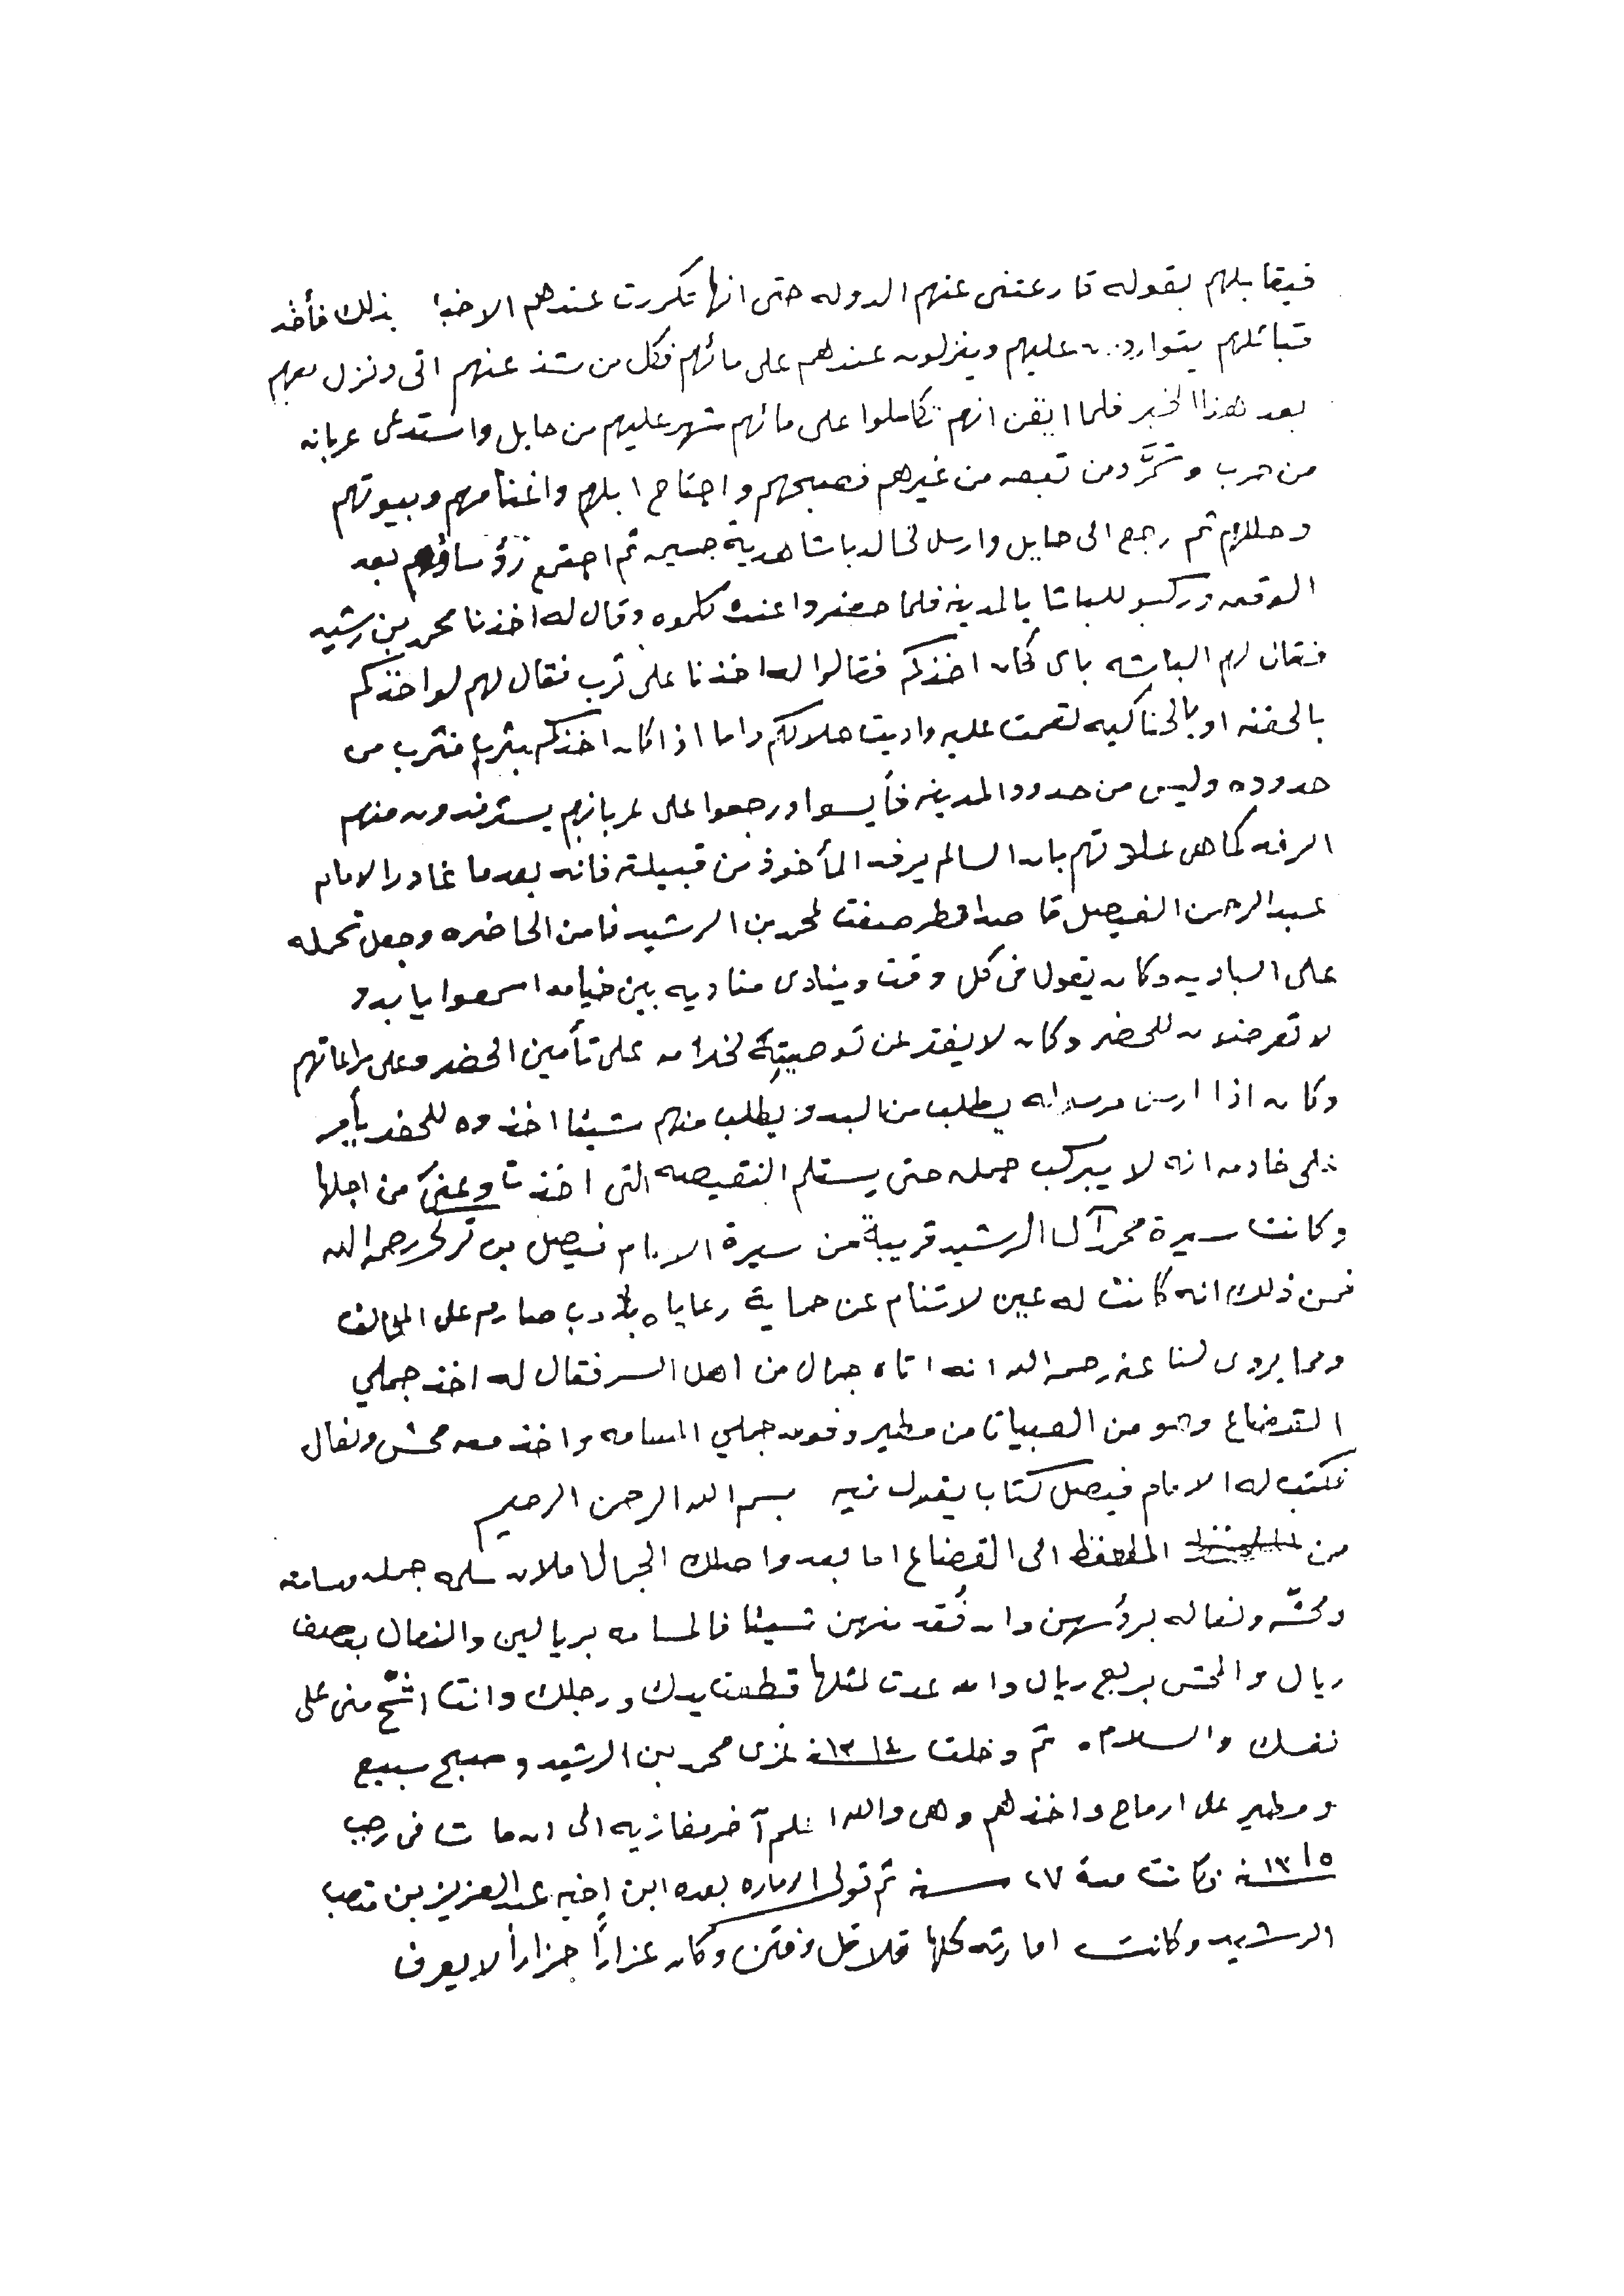 فيقابلهم بقوله قد عتني عنهم الدوله حتى انها تكررت عندهم الاخبا بذلك فأخذ
قبائلهم يتواردون عليهم وينزلون عندهم على مائهم فكل من شذ عنهم اتى ونزل معهم
بعد هذا الخبر فلما ايقن انهم تكاملوا على مائهم شهر عليهم من حايل واستدعى عربانه
من حرب وشمَّر ومن تبعه من غيرهم فصبحهم واجتاح ابلهم واغنامهم وبيوتهم
وحللهم ثم رجع الى حايل وارسل لخالد باشا هدية جسيمه ثم اجتمع رؤساؤهم بعد
الوقعه وركبو للباشا بالمدينه فلما حضروا عنده كلموه وقال له اخذنا محمد بن رشيد
فقال لهم الباشه باى مكان اخذكم فقالوا له اخذنا على ثرب فقال لهم لو اخذكم
بالحفنه او بالحناكيه لقمت عليه واديت حلالكم واما اذا كان اخذكم بثرب فثرب من
حدوده وليس من حدود المدينه فأيسوا ورجعوا على عربانهم يسترفدون منهم
الرفد كما هى عادتهم بان السالم يرفد المأخوذ من قبيلته فانه بعد ما غادر الامام
عبدالرحمن الفيصل قاصدا قطر صفت لمحمد بن الرشيد فامن الحاضره وجعل تحمله
على الباديه وكان يقول فى كل وقت وينادى مناديه بين خيامه اسمعوا يا بدو
لا تعرضون للحضر وكان لا يفتر عن توصيته لخدامه على تأمين الحضر وعلى مراعاتهم
وكان اذا ارسل مرسوله يطلب من البدو يطلب منهم شيئا اخذوه للحضر يأمر
على خادمه انه لا يبرك جمله حتى يستلم النقيصه التى اخذت من اجلها
وكانت سيرة محمد آل الرشيد قريبة من سيرة الامام فيصل بن تركى رحمه الله
فمن ذلك انه كانت له عين لا تنام عن حماية رعاياه بأدب صارم على المخالف
ومما يروى لنا عنه رحمه الله انه اتاه جمال من اهل السر فقال له اخذ جملي
القضاع وهو من الصبيان من مطير وفوق جملي المسامه واخذ معه محش ونعال
فكتب له الامام فيصل كتابا يقول فيه بسم الله الرحمن الرحيم
من الى القضاع اما بعد واصلك الجمال فلان سلمه جمله ومسامته
ومحشّه ونعاله برؤسهن وان فُقد منهن شيئا فالمسامه بريالين والنعال بنصف
ريال والمحش بربع ريال وان عدت لمثلها قطعت يدك ورجلك وانت اشّح منى على
نفسك والسلام . ثم دخلت سنة ١٣١٤ غزى محمد بن الرشيد وصبح سبيع
ومطير على ارماح واخذهم وهى والله اعلم آخر مغازيه الى ان مات فى رجب
سنة ١٣١٥ وكانت مدة ٢٧ سنه ثم تولى الاماره بعده ابن اخيه عبدالعزيز بن متعب
الرشيد وكانت امارته كلها قلاقل وفتن وكان جزاراً لا يعرف